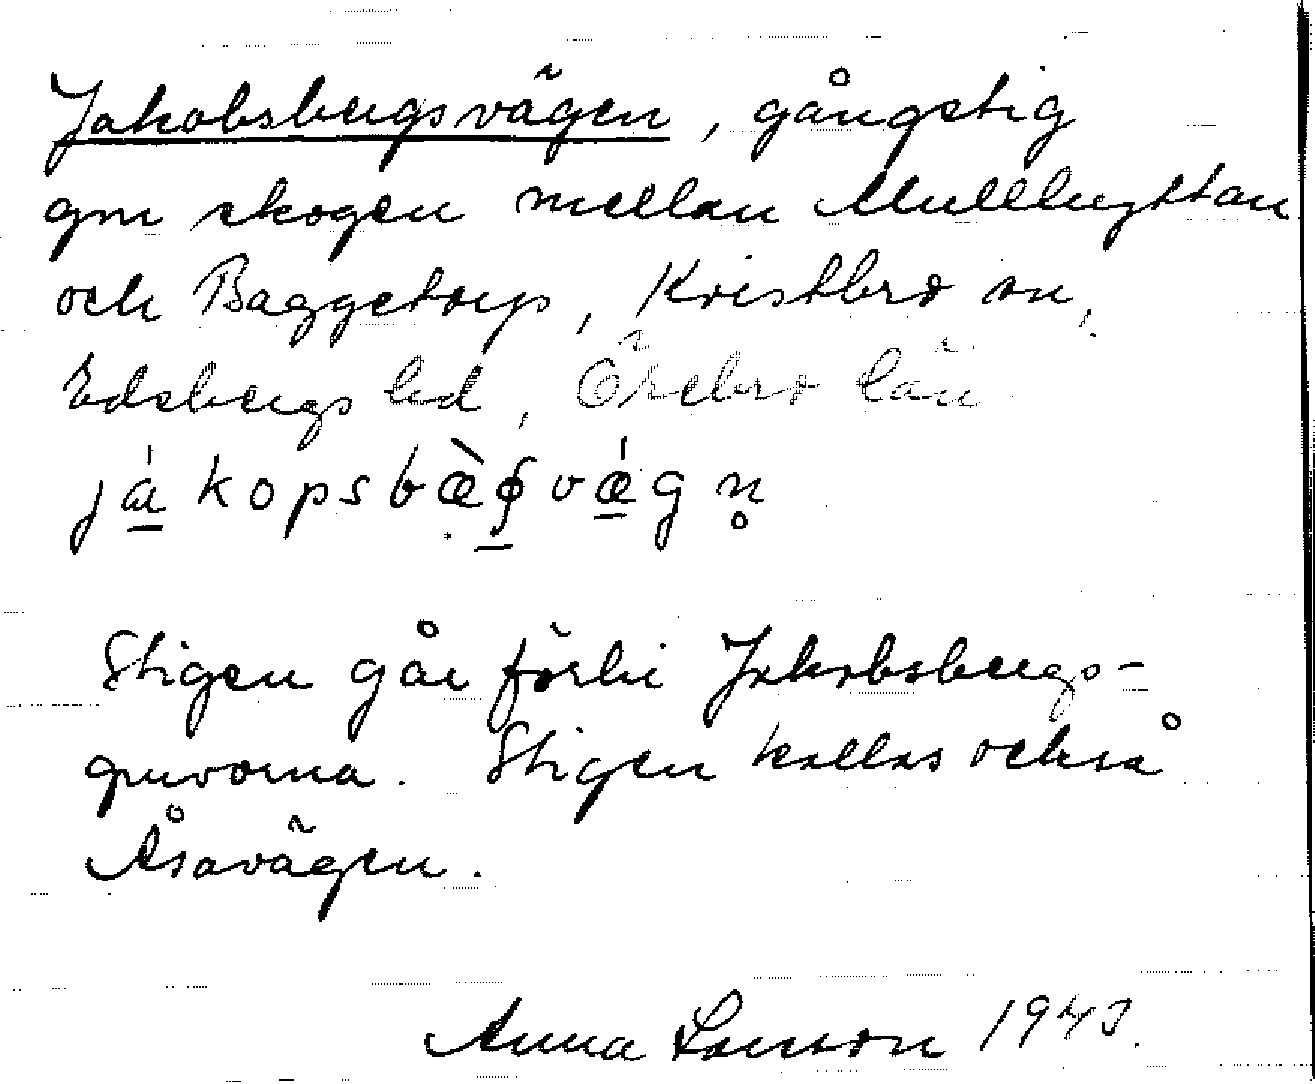 Jakobsbergsvägen, gångstig
gm skogen mellan Mullhyttan
och Baggetorp, Kvistbro sn,
Edsbergs hd, Örebro län
jákopsbæ̀ꞩvǽgn̥
Stigen går förbi Jakobsbergs-
gruvorna. Stigen kallas också
Åsavägen.
Anna Larsson 1943.